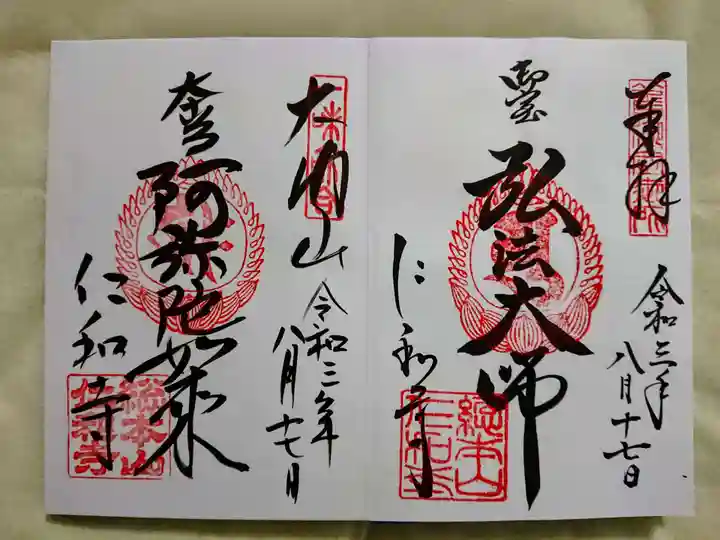 奉拝
令和三年
八月十七日
弘法大師
仁和寺
総本山
仁和寺
大内山
令和三年
八月十七日
阿弥陀如来
仁和寺
総本山
仁和寺